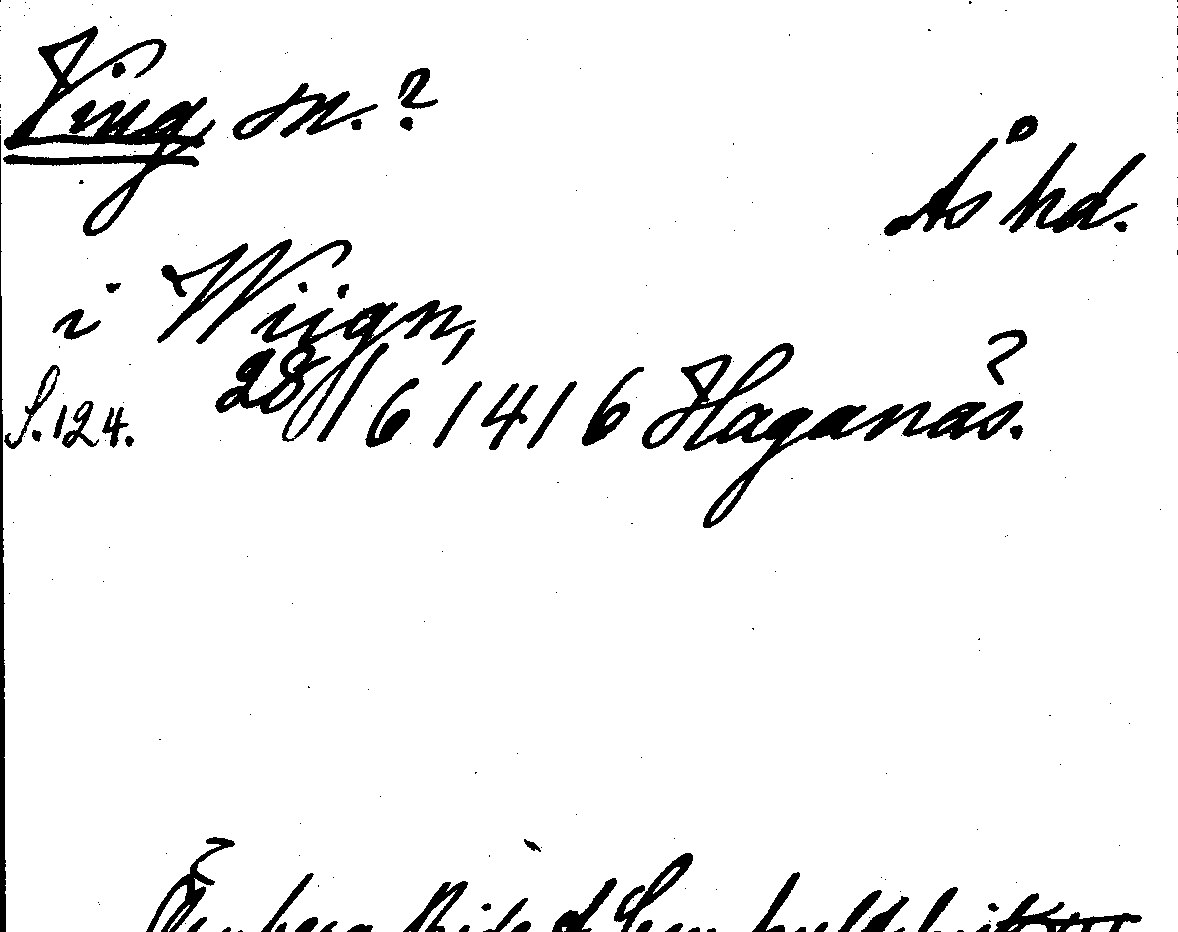 Ving, sn.?
Ås hd.
i Wiign,
S. 124. 28/6 1416 Haganäs.